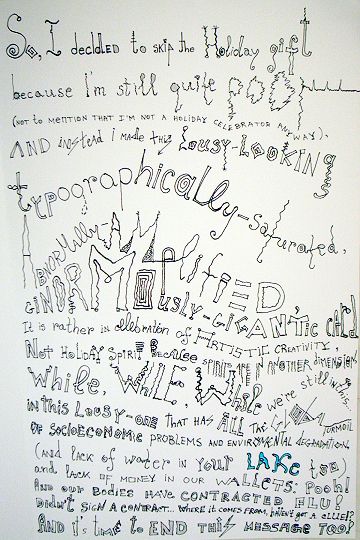 So, I decided to skip the Holiday gift
because I'm still quite poor
(not to mention that I'm not a holiday celebrator anyway).
AND instead I made this Lousy-Looking
typographically-saturated,
Abnormally Amplified,
GiNORMOusly-GIGANtic CARD
It is rather in celebration of ARTISTIC CREATIVITY,
Not Holiday Spirit because spirits are in another dimension.
While, WHILE, While we're still in this,
in this Lousy-one that has ALL the TURMOIL
of socioeconomic problems and environmental degradation,
(and lack of water in Your LAKE too)
and lack of money in our wallets; Pooh!
And our bodies have contracted FLU!
Didn't sign a contract... where it comes from, haven't got a clue!?
And it's time to END this MESSAGE TOO!